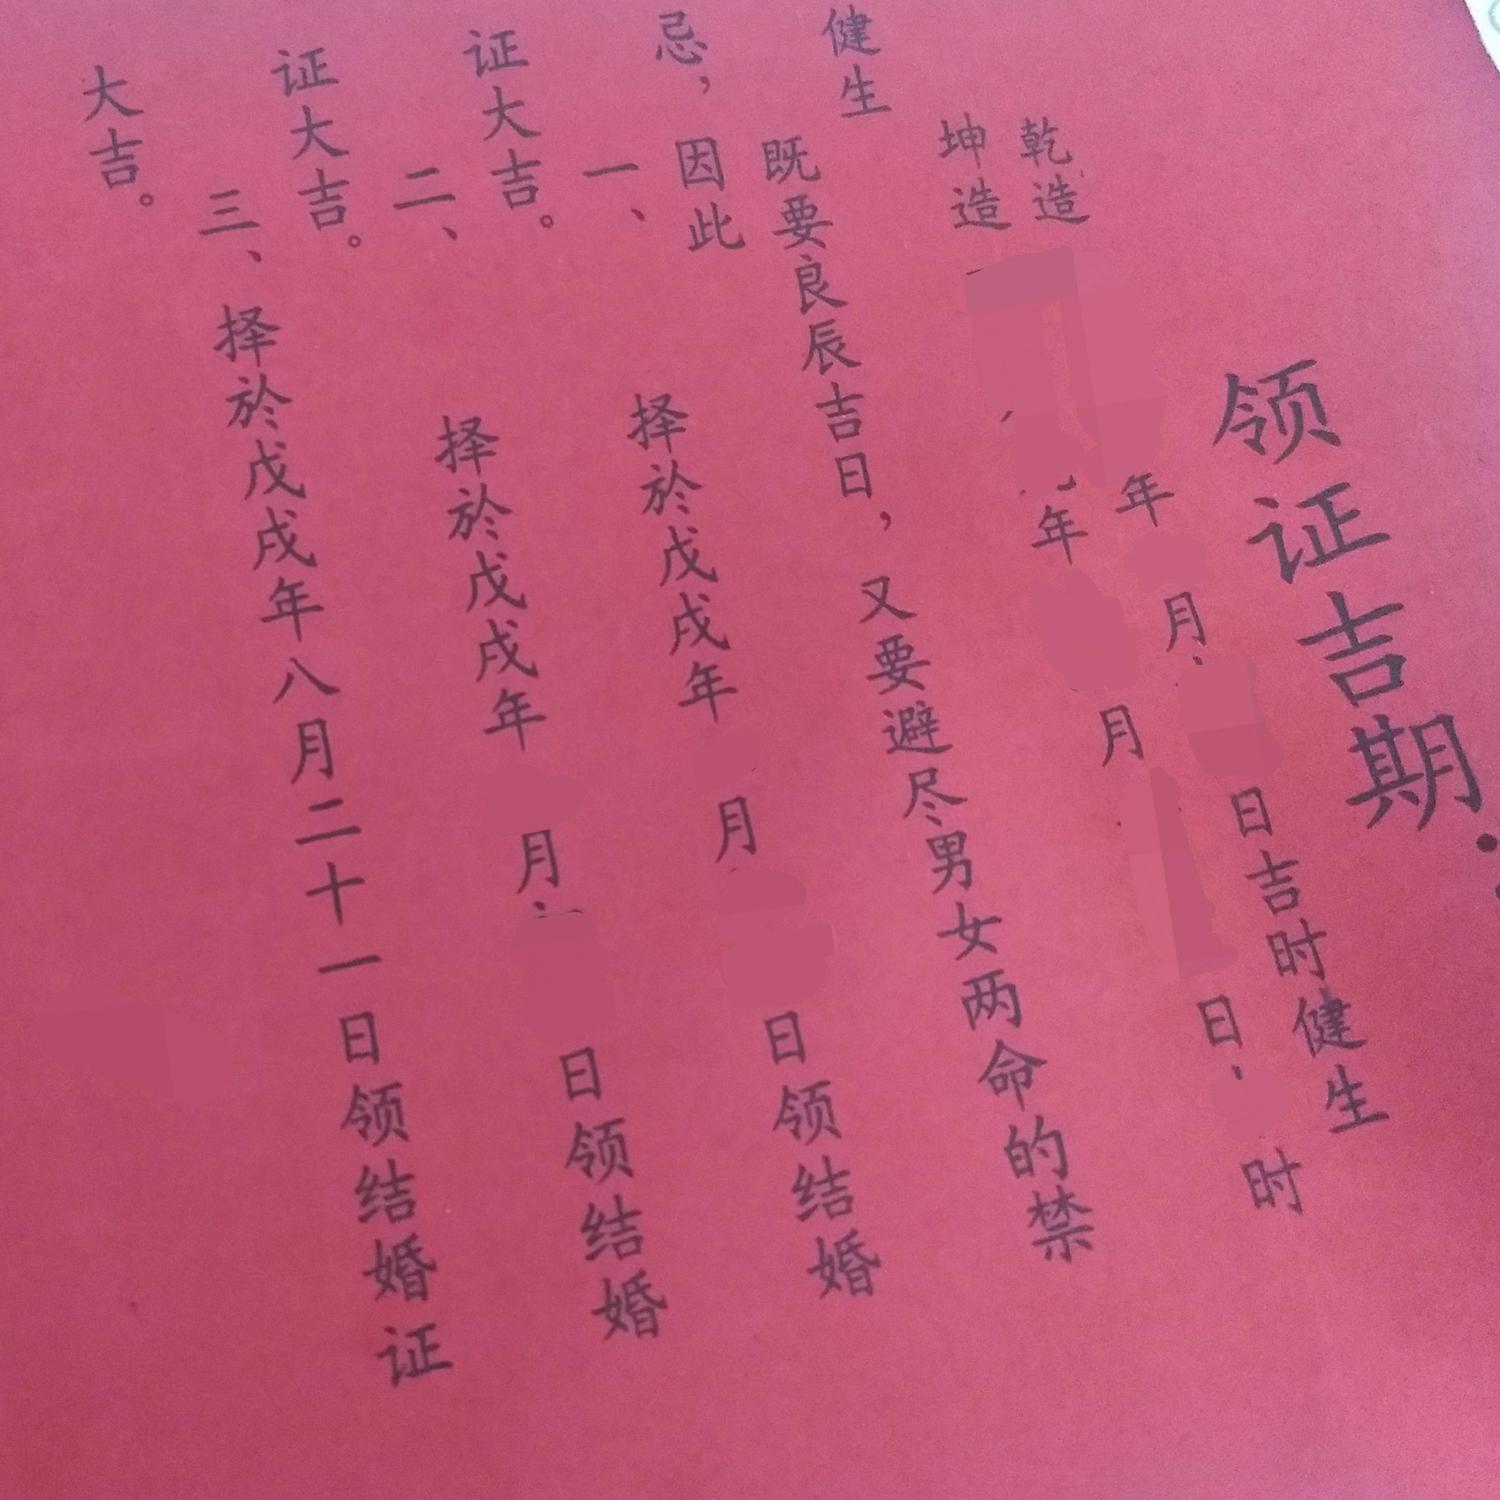 领证吉期：
乾造 年 月 日吉时健生
坤造 年 月 日 时
健生
既要良辰吉日，又要避尽男女两命的禁
忌，因此
一、择於戊戌年 月 日领结婚
证大吉。
二、择於戊戌年 月 日领结婚
证大吉。
三、择於戊戌年八月二十一日领结婚证
大吉。